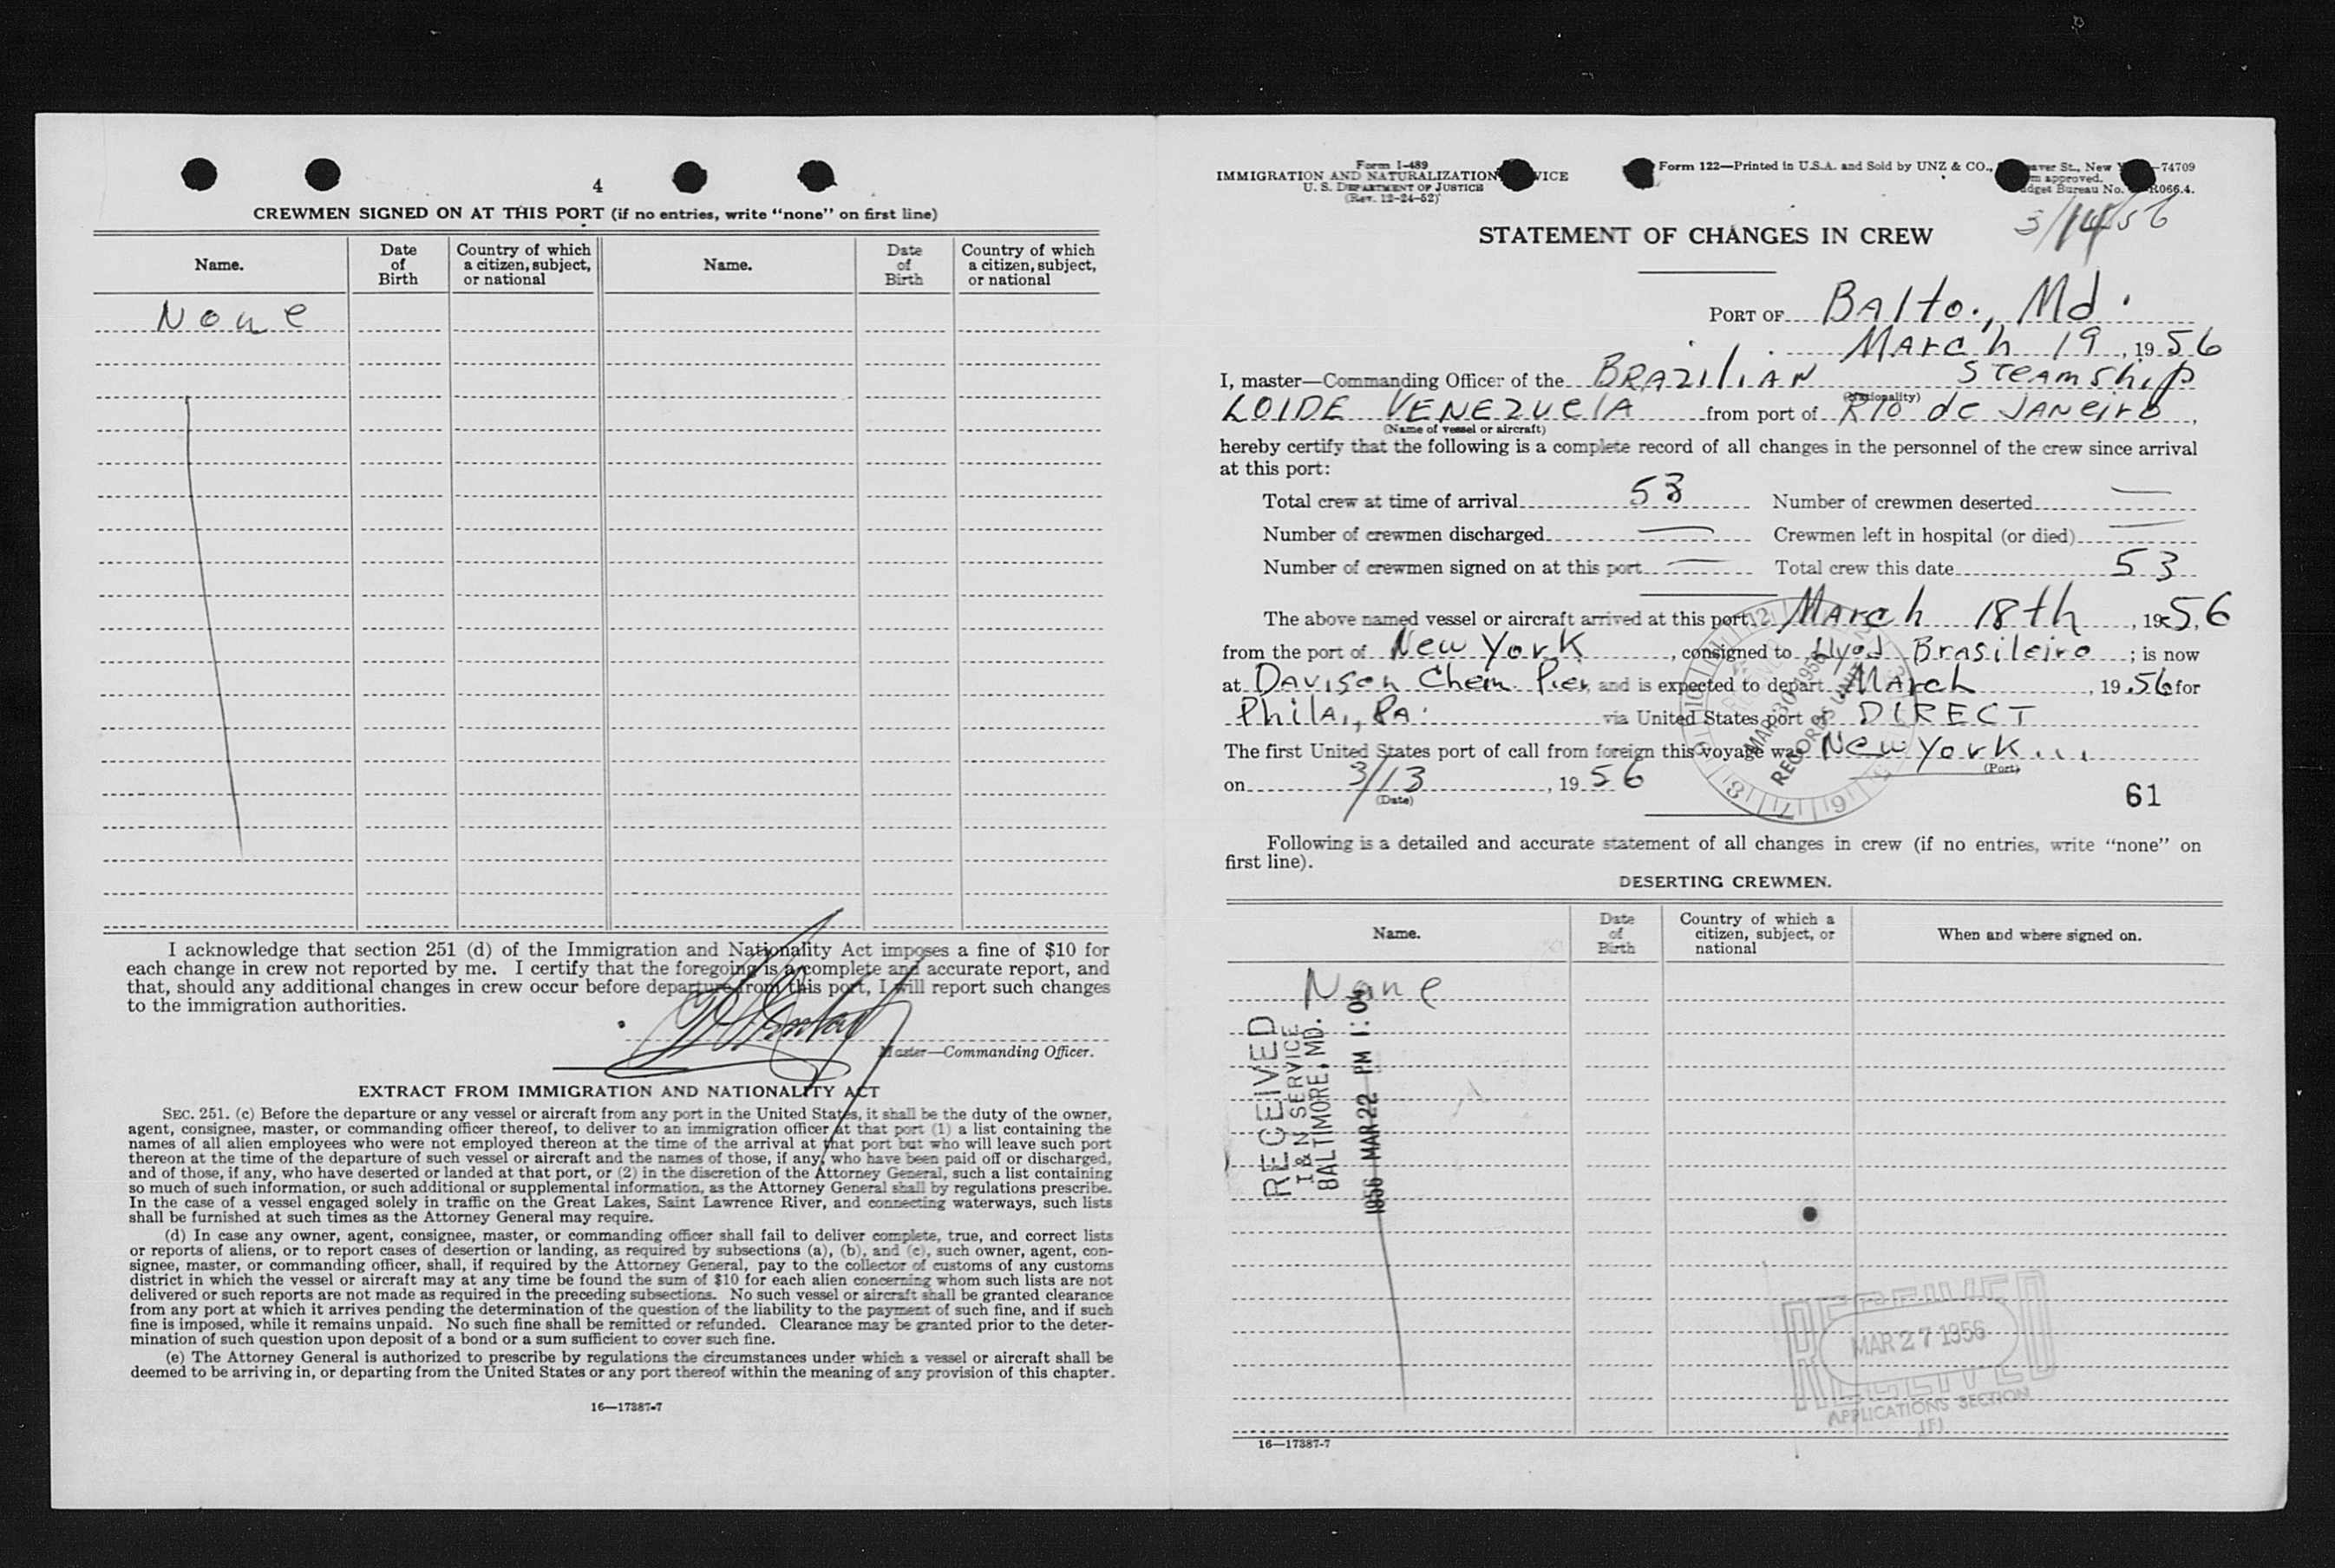 4
CREWMEN SIGNED ON AT THIS PORT (if no entries, write "none" on first line)
Name. Date of Birth Country of which a citizen, subject, or national Name. Date of Birth Country of which a citizen, subject, or national
None
I acknowledge that section 251 (d) of the Immigration and Nationality Act imposes a fine of $10 for
each change in crew not reported by me. I certify that the foregoing is a complete and accurate report, and
that, should any additional changes in crew occur before departure from this port, I will report such changes
to the immigration authorities.
Master—Commanding Officer.
EXTRACT FROM IMMIGRATION AND NATIONALITY ACT
SEC. 251. (c) Before the departure or any vessel or aircraft from any port in the United States, it shall be the duty of the owner,
agent, consignee, master, or commanding officer thereof, to deliver to an immigration officer at that port (1) a list containing the
names of all alien employees who were not employed thereon at the time of the arrival at that port but who will leave such port
thereon at the time of the departure of such vessel or aircraft and the names of those, if any, who have been paid off or discharged,
and of those, if any, who have deserted or landed at that port, or (2) in the discretion of the Attorney General, such a list containing
so much of such information, or such additional or supplemental information, as the Attorney General shall by regulations prescribe.
In the case of a vessel engaged solely in traffic on the Great Lakes, Saint Lawrence River, and connecting waterways, such lists
shall be furnished at such times as the Attorney General may require.
(d) In case any owner, agent, consignee, master, or commanding officer shall fail to deliver complete, true, and correct lists
or reports of aliens, or to report cases of desertion or landing, as required by subsections (a), (b), and (c), such owner, agent, con-
signee, master, or commanding officer, shall, if required by the Attorney General, pay to the collector of customs of any customs
district in which the vessel or aircraft may at any time be found the sum of $10 for each alien concerning whom such lists are not
delivered or such reports are not made as required in the preceding subsections. No such vessel or aircraft shall be granted clearance
from any port at which it arrives pending the determination of the question of the liability to the payment of such fine, and if such
fine is imposed, while it remains unpaid. No such fine shall be remitted or refunded. Clearance may be granted prior to the deter-
mination of such question upon deposit of a bond or a sum sufficient to cover such fine.
(e) The Attorney General is authorized to prescribe by regulations the circumstances under which a vessel or aircraft shall be
deemed to be arriving in, or departing from the United States or any port thereof within the meaning of any provision of this chapter.
16—17387-7
Form I-489
IMMIGRATION AND NATURALIZATION VICE
U. S. DEPARTMENT OF JUSTICE
(Rev. 12-24-52)
Form 122—Printed in U.S.A. and Sold by UNZ & CO., aver St., New —74709
m approved.
dget Bureau No. R066.4.
3/14/56
STATEMENT OF CHANGES IN CREW
PORT OF Balto., Md.
March 19, 1956
I, master—Commanding Officer of the BRAZILIAN Steamship
(Nationality)
LOIDE VENEZUELA from port of Rio de Janeiro,
(Name of vessel or aircraft)
hereby certify that the following is a complete record of all changes in the personnel of the crew since arrival
at this port:
Total crew at time of arrival 53 Number of crewmen deserted —
Number of crewmen discharged — Crewmen left in hospital (or died) —
Number of crewmen signed on at this port — Total crew this date 53
The above named vessel or aircraft arrived at this port March 18th, 1956
from the port of New York, consigned to Llyod Brasileiro; is now
at Davison Chem. Pier, and is expected to depart March, 1956 for
Phila., Pa. via United States port of DIRECT
The first United States port of call from foreign this voyage was New York...
(Port)
on 3/13, 1956
(Date)
MAR 30 1956
RECORDS UNIT
61
Following is a detailed and accurate statement of all changes in crew (if no entries, write "none" on
first line).
DESERTING CREWMEN.
Name. Date of Birth Country of which a citizen, subject, or national When and where signed on.
None
RECEIVED
I & N SERVICE
BALTIMORE, MD.
1956 MAR 22 PM 1:04
RECEIVED
MAR 27 1956
APPLICATIONS SECTION
16—17387-7